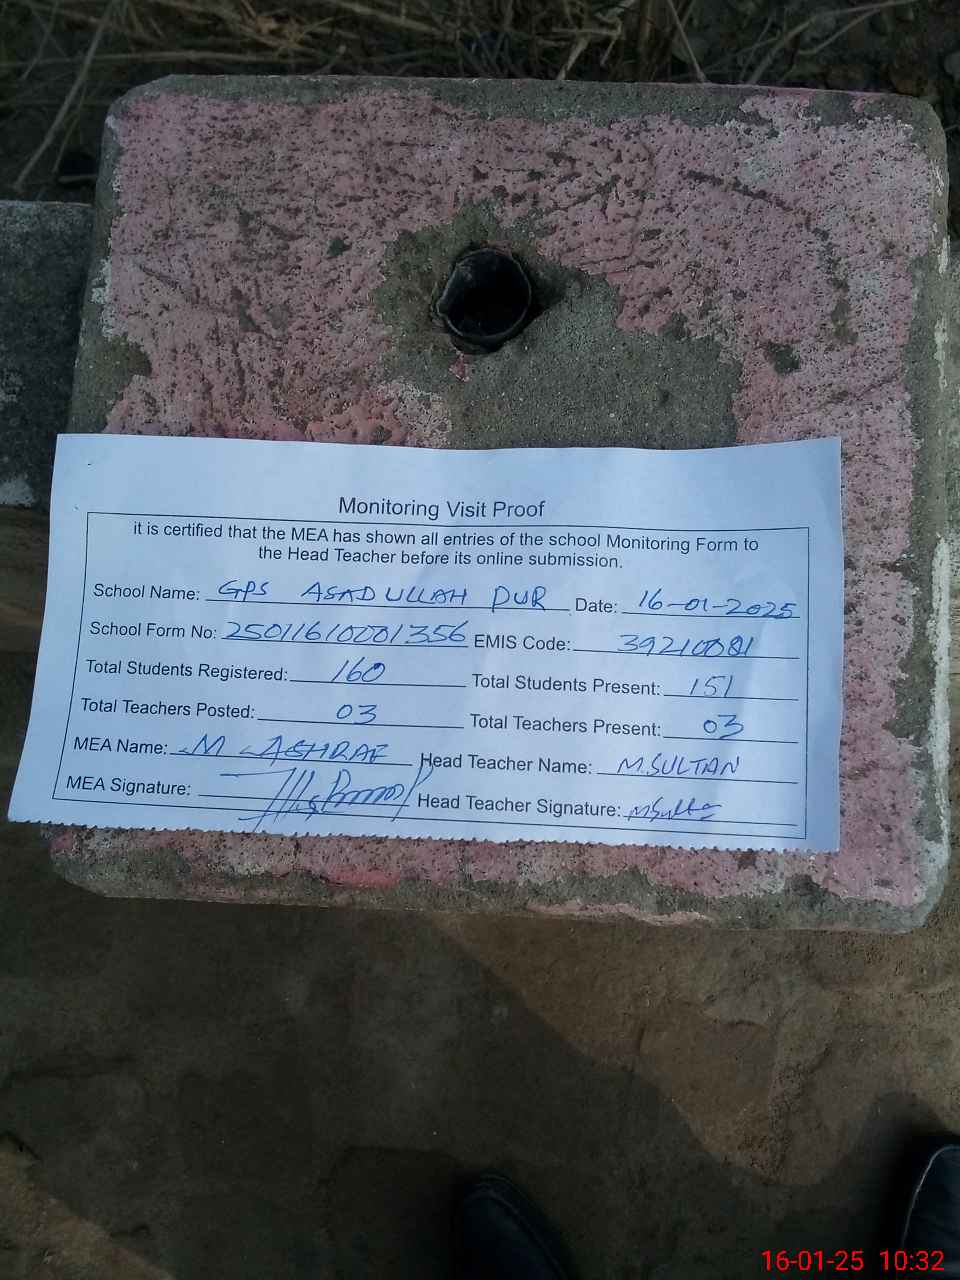 Monitoring Visit Proof
it is certified that the MEA has shown all entries of the school Monitoring Form to
the Head Teacher before its online submission.
School Name: GPS ASADULLAH PUR Date: 16-01-2025
School Form No: 25011610001356 EMIS Code: 39210081
Total Students Registered: 160 Total Students Present: 151
Total Teachers Posted: 03 Total Teachers Present: 03
MEA Name: M ASHRAF Head Teacher Name: M.SULTAN
MEA Signature: Head Teacher Signature:
16-01-25 10:32